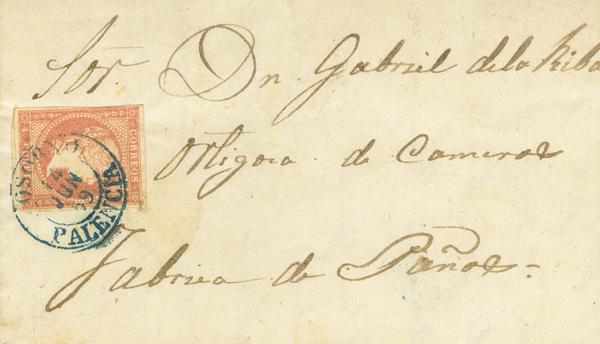 Sor. Dn. Gabriel de la Riba
Ortigosa de Cameros
Fabrica de Paños.
CORREOS
14
JUN
PALENCIA